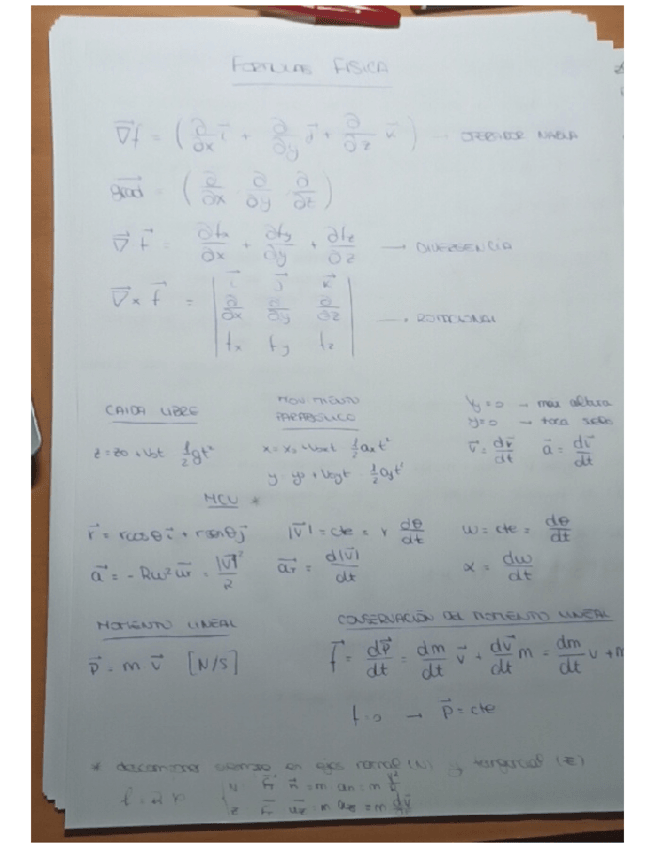 FORMULAS FISICA
∇⃗f = ( ∂/∂x i⃗ + ∂/∂y j⃗ + ∂/∂z k⃗ ) → OPERADOR NABLA
grad⃗ = ( ∂/∂x ∂/∂y ∂/∂z )
∇⃗ f⃗ = ∂fx/∂x + ∂fy/∂y + ∂fz/∂z → DIVERGENCIA
∇⃗ × f⃗ = | i⃗ j⃗ k⃗ |
| ∂/∂x ∂/∂y ∂/∂z | → ROTACIONAL
| fx fy fz |
CAIDA LIBRE
z = z0 + v0t ½gt²
MOVIMIENTO
PARABOLICO
x = x0 + v0xt ½axt²
y = y0 + v0yt ½ayt²
Vy = 0 → max altura
y = 0 → toca suelo
v⃗ = dr⃗/dt a⃗ = dv⃗/dt
MCU *
r⃗ = rcosθ i⃗ + rsenθ j⃗ |v⃗| = cte = r dθ/dt w = cte = dθ/dt
a⃗ = -Rw² u⃗r = |v⃗|²/R a⃗τ = d|v⃗|/dt α = dw/dt
MOMENTO LINEAL
p⃗ = m v⃗ [N/S]
CONSERVACIÓN DEL MOMENTO LINEAL
f⃗ = dp⃗/dt = dm/dt v⃗ + dv⃗/dt m = dm/dt v + m
f = 0 → p⃗ = cte
* descomponer siempre en ejes normal (N) y tangencial (τ)